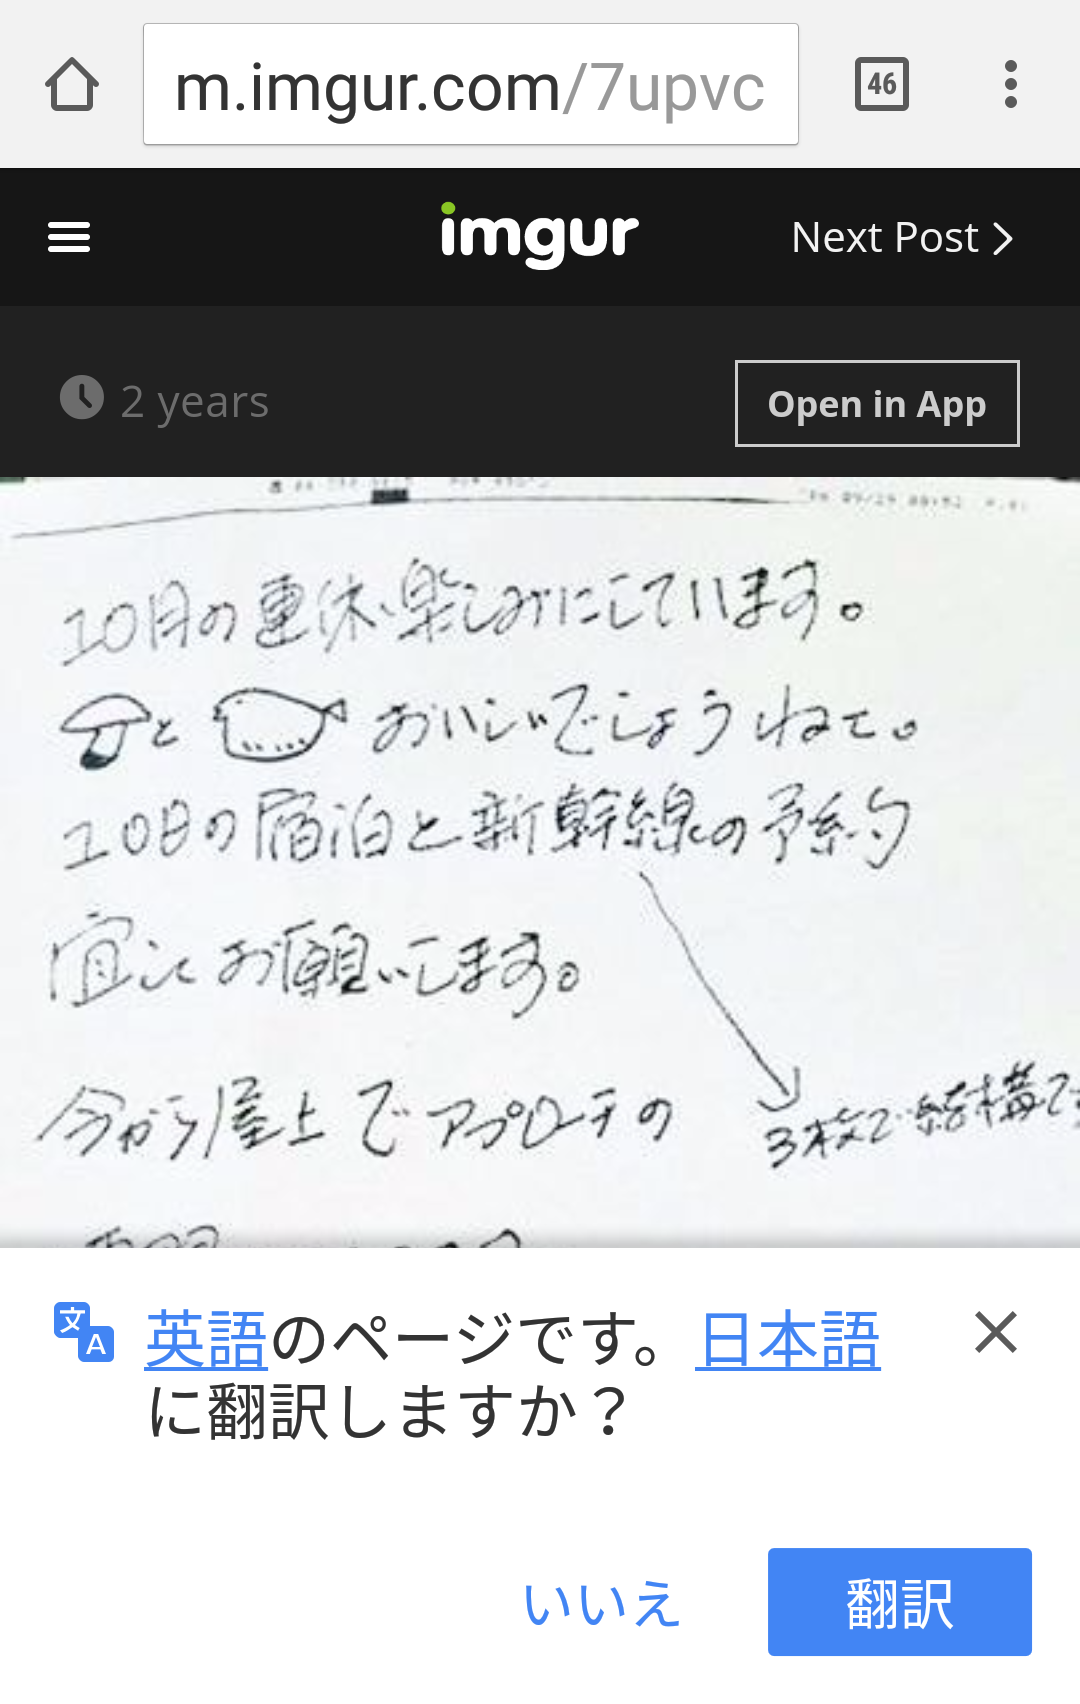 m.imgur.com/7upvc
46
imgur
Next Post
2 years
Open in App
10月の連休、楽しみにしています。
と おいしいでしょうねェ。
10日の宿泊と新幹線の予約
宜しくお願いします。
今から屋上でアプローチの
3枚で結構で
英語のページです。日本語
に翻訳しますか？
いいえ
翻訳